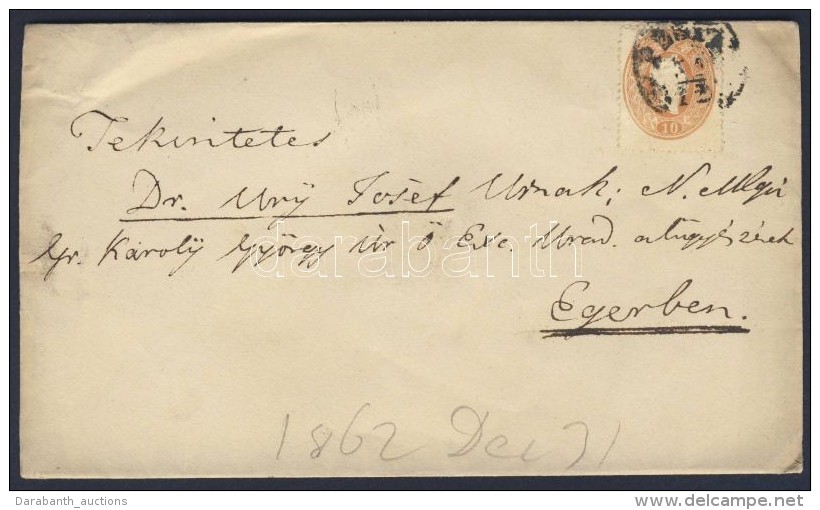 PESTH
10
Tekintetes
Dr. Ury József Urnak; N. Mlgú
Gr. Károly György úr Ő Exc. Urad. alügyészének
Egerben.
darabanth
1862 Dec 31
Darabanth_auctions
delcampe.net